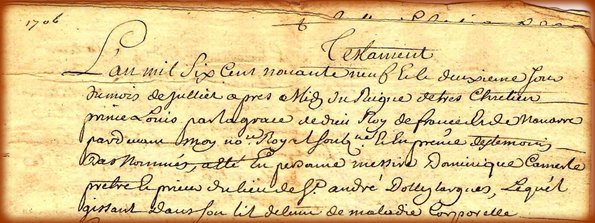 1706
Testament
L'an mil Six Cent nonante neuf & le deuxieme Jour
du mois de Juilliet apres Midy du Reigne de tres Chretien
prince Louis par la grace de dieu Roy de france & de Nauarre
pardeuant moy no.re Royal soub.né & En prence des temoins
bas Nommés, esté En personne messire Dominique Camerle
prebtre & prieur du lieu de S.t andré Dolleyrargues, Lequel
gissant Dans son lit detenu de maladie Corporelle